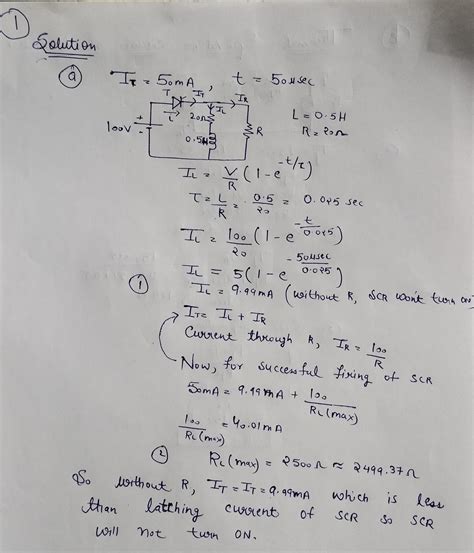 ①
Solution
ⓐ
I_τ = 50mA, t = 50μsec
T I_T I_R
i I_L
20Ω
100V + -
0.5H
R
L = 0.5H
R = 20Ω
I_L = V/R (1 - e^(-t/τ))
τ = L/R = 0.5/20 = 0.025 sec
I_L = 100/20 (1 - e^(-t/0.025))
I_L = 5(1 - e^(-50μsec/0.025))
① I_L = 9.99mA (without R, SCR won't turn on)
I_T = I_L + I_R
Current through R, I_R = 100/R
Now, for successful firing of SCR
50mA = 9.99mA + 100/R_L(max)
100/R_L(max) = 40.01mA
② R_L(max) = 2500Ω ≈ 2499.37Ω
So without R, I_T = I_T = 9.99mA which is less
than latching current of SCR so SCR
will not turn ON.